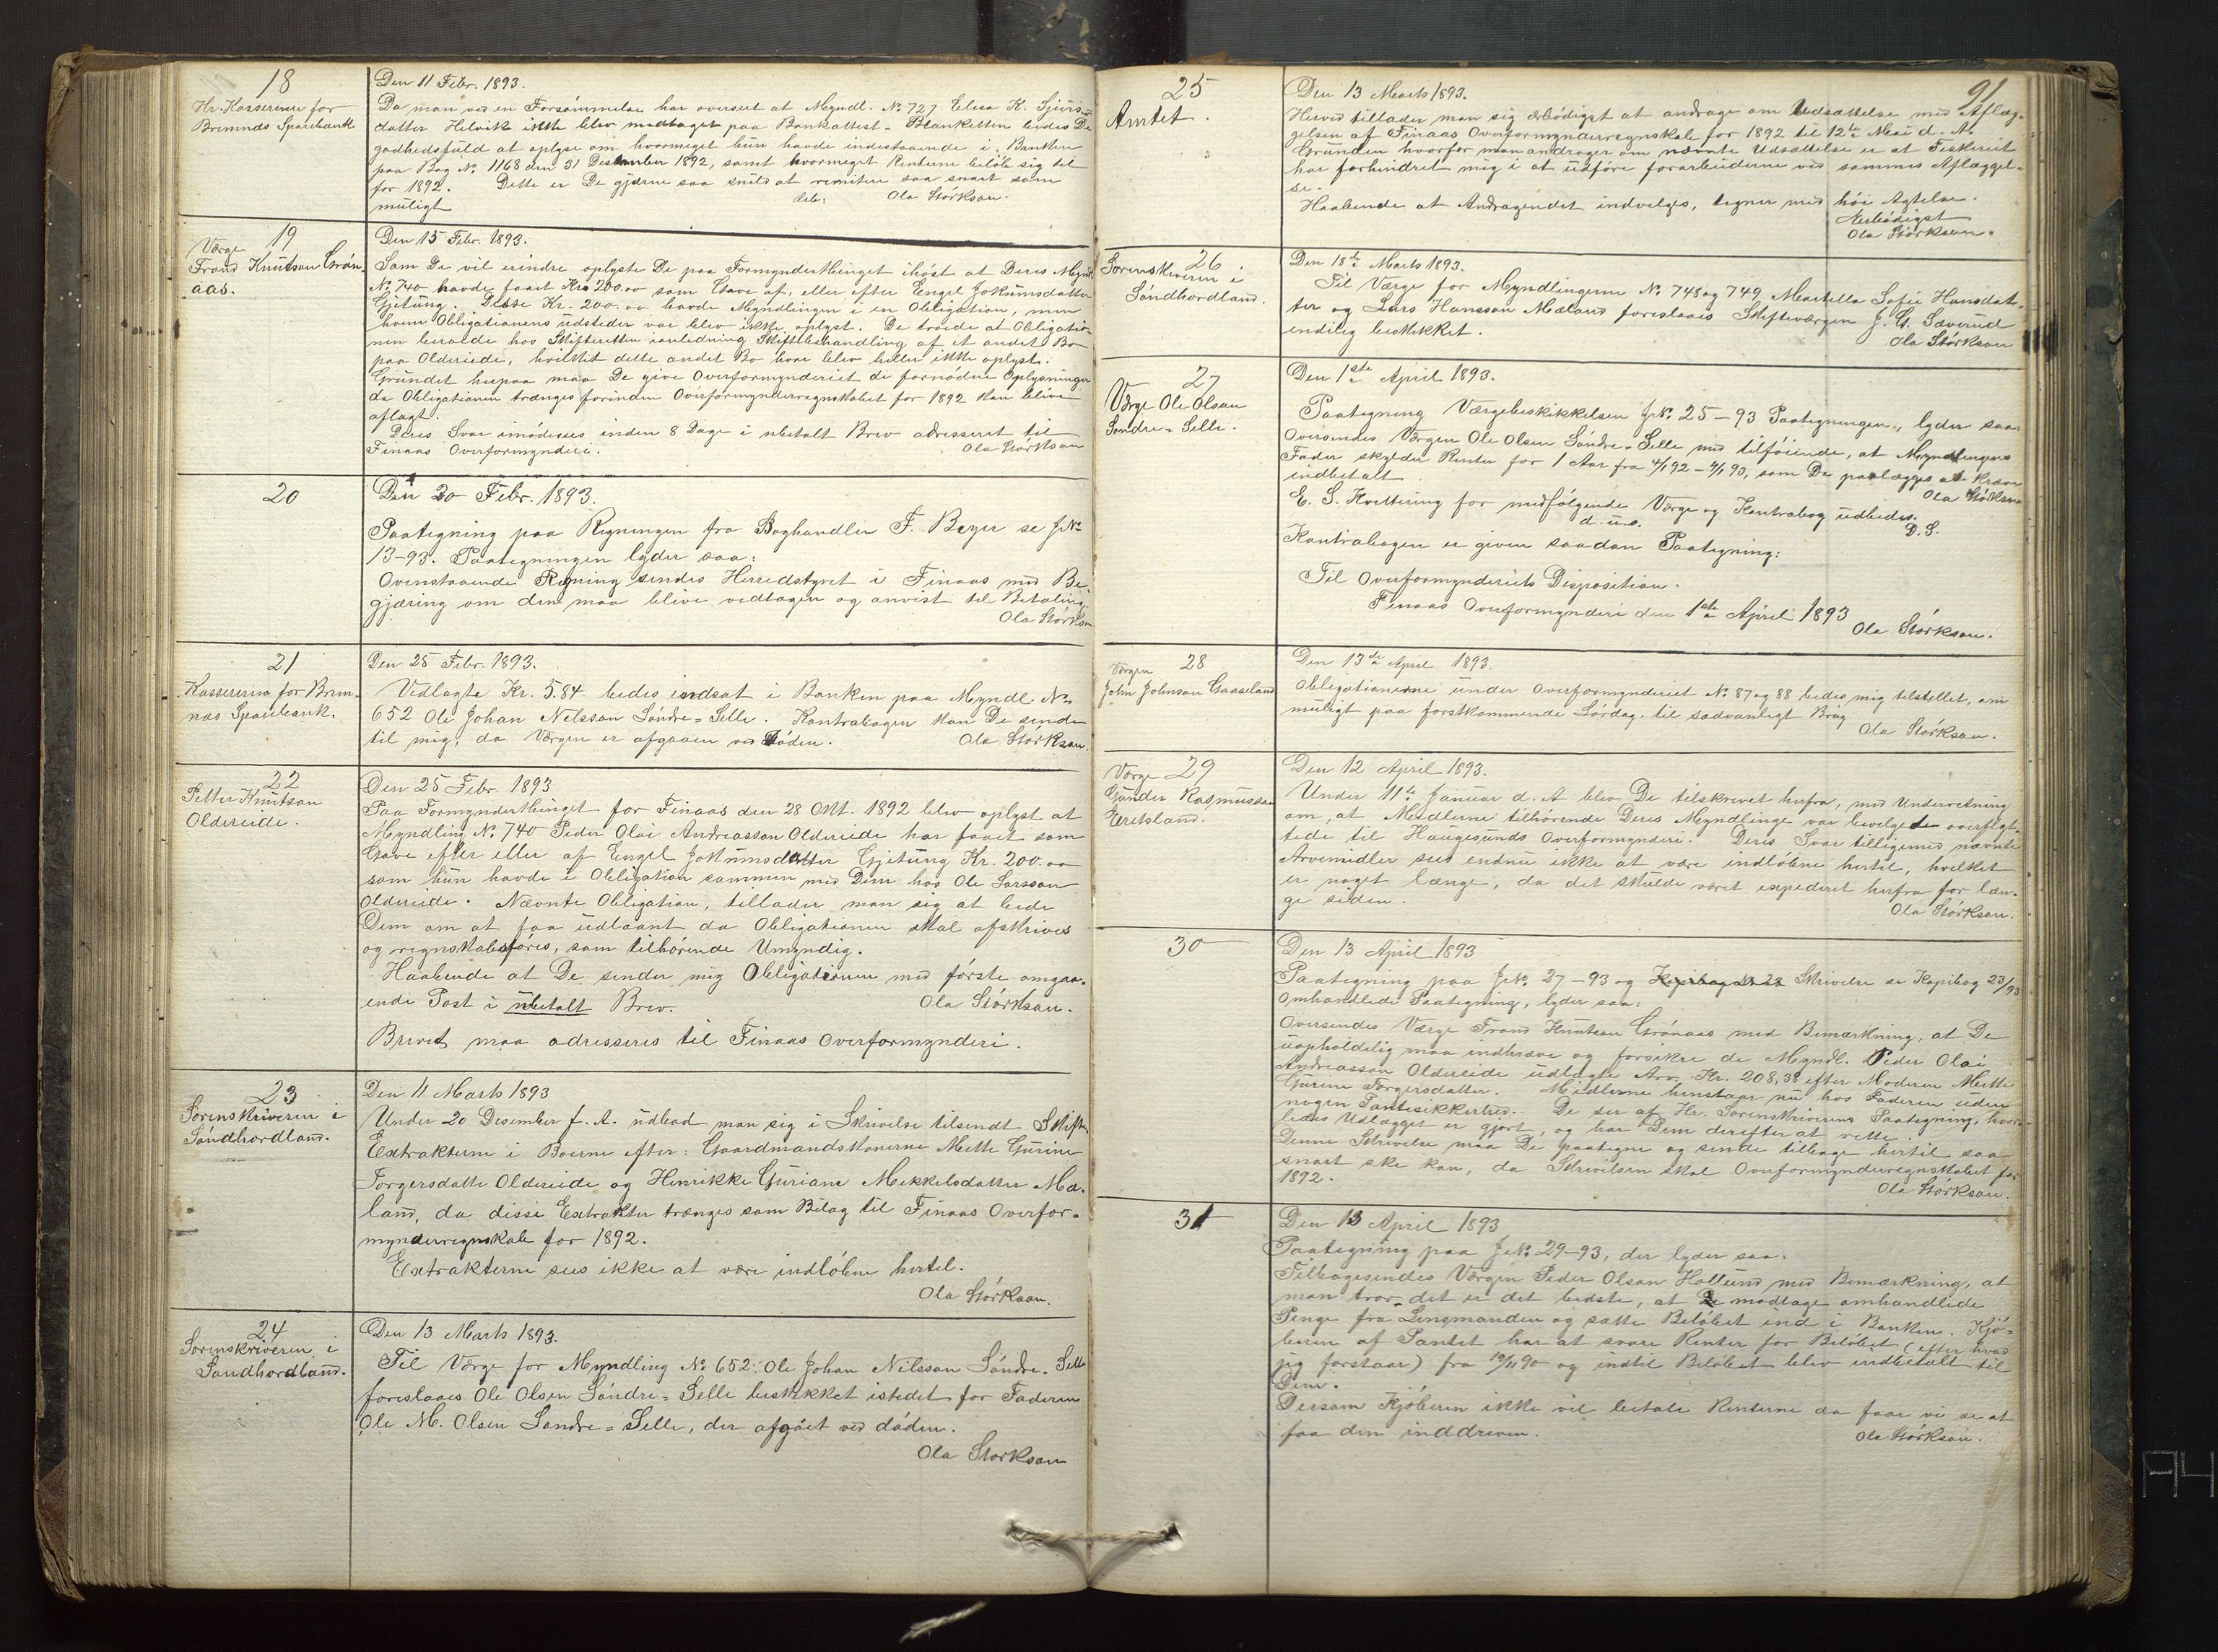 18
Hr. Kassereren for
Bremnæs Sparebank
Den 11 Febr. 1893.
Da man ved en Forsømmelse har overseet at Myndl. No 727 Elisa K. Sjurs-
datter Helvik ikke blev medtaget paa Bankattest-Blanketten bedes De
godhedsfuld at oplyse om hvormeget hun havde indestaaende i Banken
paa Bog No 1168 den 31 Desember 1892, samt hvormeget Renterne beløb sig til
for 1892. Dette er De gjerne saa snild at remitere saa snart som
muligt
Ærb: Ola Størkson.
19
Værge
Trond Knutson Grøn-
aas.
Den 15 Febr. 1893.
Som De vil erindre oplyste De paa Formynderthinget ihøst at Deres Mynd.
No 740 havde faaet Kr. 200.00 som Gave af, eller efter Engel Jokumsdatter
Gjetung. Disse Kr. 200.00 havde Myndlingen i en Obligation, men
hvem Obligationens udsteder var blev ikke oplyst. De troede at Obligatio-
nen beroede hos Skifteretten i anledning Skiftebehandling af et andet Bo
paa Oldereide, hvilket dette andet Bo hvar blev heller ikke oplyst.
Grundet herpaa maa De give Overformynderiet de fornødne Oplysninger
da Obligationen trænges forinden Overformynderregnskabet for 1892 kan blive
aflagt.
Deres Svar imødesees inden 8 Dage i ubetalt Brev adresseret til
Finaas Overformynderi.
Ola Størkson
20
Den 20 Febr. 1893.
Paategning paa Regningen fra Boghandler F. Beyer se J.No
13-93. Paategningen lyder saa:
Ovenstaaende Regning sendes Herredstyret i Finaas med Be-
gjæring om den maa blive vedtagen og anvist til Betaling.
Ola Størkson
21
Kassereren for Brem-
næs Sparebank.
Den 25 Febr. 1893.
Vedlagte Kr. 5.84. bedes indsat i Banken paa Myndl. No
652 Ole Johan Nelsson Søndre=Selle. Kontrabogen kan De sende
til mig, da Værgen er afgaaen ved Døden.
Ola Størkson.
22
Petter Knutson
Oldereide.
Den 25 Febr. 1893
Paa Formynderthinget for Finaas den 28 Okt. 1892 blev oplyst at
Myndling No 740 Peder Olai Andreasson Oldereide har faaet som
Gave efter eller af Engel Jokumsdatter Gjetung Kr. 200.00
som hun havde i Obligation sammen med Dem hos Ole Larsson
Oldereide. Nævnte Obligation, tillader man sig at bede
Dem om at faa udlaant da Obligationen skal afskrives
og regnskabsføres, som tilhørende Umyndig.
Haabende at De sender mig Obligationen med første omgaa-
ende Post i ubetalt Brev.
Ola Størkson.
Brevet maa adresseres til Finaas Overformynderi.
23
Sorenskriveren i
Søndhordland.
Den 11 Marts 1893
Under 20 Desember f. A. udbad man sig i Skrivelse tilsendt Skifte-
Extrakterne i Boerne efter: Gaardmandskonerne Mette Gurine
Torgersdatte Oldereide og Henrikke Guriane Mekkelsdatter Mæ-
land, da disse Extrakter trænges som Bilag til Finaas Overfor-
mynderregnskab for 1892.
Extrakterne sees ikke at være indløbne hertil.
Ola Størkson.
24
Sorenskriveren i
Søndhordland.
Den 13 Marts 1893.
Til Værge for Myndling No 652: Ole Johan Nilsson Søndre-Selle
foreslaaes Ole Olsen Søndre=Selle beskikket istedet for Faderen
Ole M. Olsen Søndre=Selle, der afgået ved døden.
Ola Størkson
91
25
Amtet.
Den 13 Marts 1893.
Herved tillader man sig ærbødigst at andrage om Udsættelse med Aflæg-
gelsen af Finaas Overformynderregnskab for 1892 til 12te Mai d. A.
Grunden hvorfor man andrager om nævnte Udsættelse er at Fiskeriet
har forhindret mig i at udføre forarbeiderne ved sammes Aflæggel-
se.
Haabende at Andragendet indvilges, tegner med høi Agtelse.
Ærbødigst
Ola Størkson.
26
Sorenskriveren i
Søndhordland.
Den 18de Marts 1893.
Til Værge for Myndlingerne No 748 og 749 Martella Sofie Hansdat-
ter og Lars Hansson Mæland foreslaaes Skifteværgen J. G. Sæverud
endelig beskikket.
Ola Størkson
27
Værge Ole Olson
Søndre-Selle.
Den 1ste April 1893.
Paategning Værgebeskikkelsen J.No 25-93 Paategningen, lyder saa:
Oversendes Værgen Ole Olsen Søndre=Selle med tilføiende, at Myndlingens
Fader skylder Renter for 1 Aar fra 4/1 92 - 4/1 93, som De paalægges at kræve
indbetalt.
Ola Størkson
E. S. Kvittering for medfølgende Værge og Kontrabog udbedes.
d.u.s.
D.S.
Kontrabogen er given saadan Paategning:
Til Overformynderiets Disposition.
Finaas Overformynderi den 1ste April 1893
Ola Størkson.
28
Værgen
John Johnson Gaaseland
Den 13de April 1893.
Obligationerne under Overformynderiet No 87 og 88 bedes mig tilstillet, om
muligt paa førstkommende Lørdag, til sædvanligt Brug
Ola Størkson.
29
Værge
Gunder Rasmusson
Eeritsland.
Den 12 April 1893.
Under 11te Januar d. A blev De tilskrevet herfra, med Underretning
om, at Midlerne tilhørende Deres Myndlinge var bevilgede overflyt-
tede til Haugesunds Overformynderi. Deres Svar tilligemed nævnte
Arvemidler sees endnu ikke at være indløbne hertil, hvilket
er noget længe, da det skulde været expederet herfra for læn-
ge siden.
Ola Størkson.
30
Den 13 April 1893
Paategning paa J.No 27-93 og Skrivelse se Kopibog 23/93
Omhandlede Paategning, lyder saa:
Oversendes Værge Trond Knutson Grønaas med Bemærkning, at De
uopholdelig maa indkræve og forsikre de Myndl. Peder Olai
Andreasson Oldereide udlagte Arv. Kr. 208,38 efter Moderen Mette
Gurine Torgersdatter. Midlerne henstaar nu hos Faderen uden
nogen Pantesikkerhed. De ser af Hr. Sorenskriverens Paategning, hvor-
ledes Udlægget er gjort, og har Dem derefter at rette.
Denne Skrivelse maa De paategne og sende tilbage hertil saa
snart ske kan, da Skrivelsen skal Overformynderregnskabet for
1892.
Ola Størkson.
31
Den 13 April 1893
Paategning paa J.No 29-93, der lyder saa:
Tilbagesendes Værgen Peder Olson Hollund med Bemærkning, at
man tror, det er det bedste, at De modtage omhandlede
Penge fra Lensmanden og sætte Beløbet ind i Banken. Kjø-
beren af Pantet har at svare Renter for Beløbet (efter hvad
jeg forstaar) fra 10/11 90 og indtil Beløbet blev indbetalt til
Dem.
Dersom Kjøberen ikke vil betale Renterne da faar vi se at
faa den inddreven.
Ola Størkson.